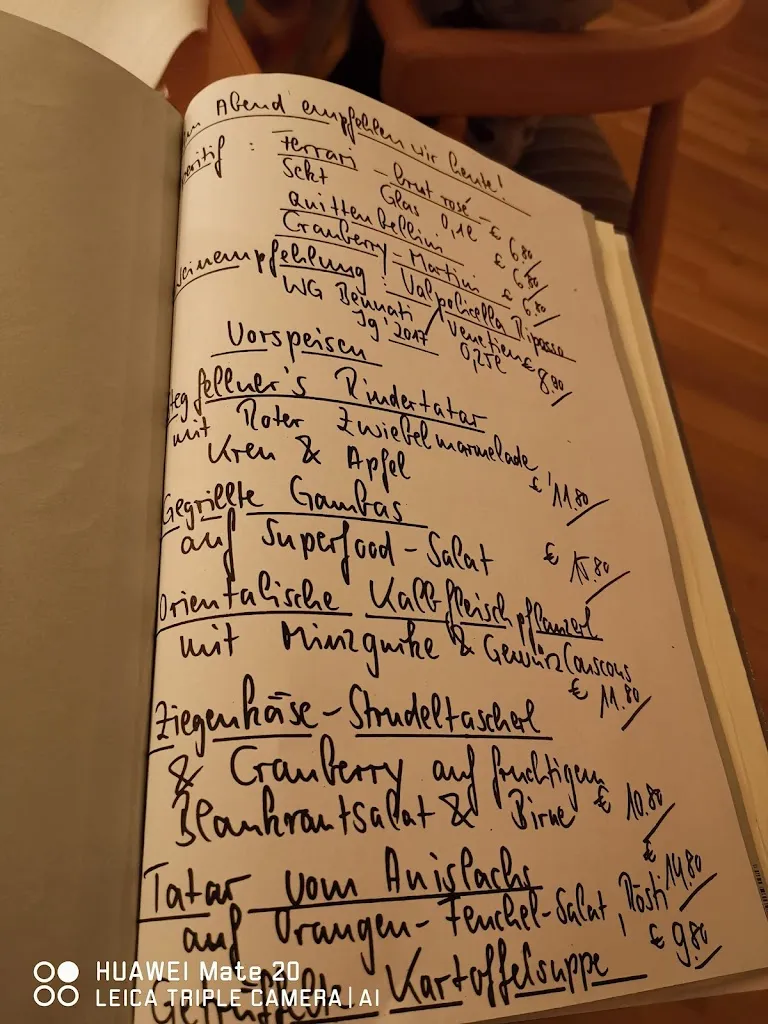 Abend empfehlen wir heute!
: Ferrari - brut rosé -
Sekt Glas 0,1l € 6.80
Quittenbellini € 6.80
Cranberry-Martini € 6.80
Weinempfehlung: Valpolicella Ripasso
WG Bennati / Venetien
Jg' 2017 0,25l € 8.90
Vorspeisen
fellner's Rindertatar
mit Roter Zwiebelmarmelade,
Kren & Apfel € 11.80
Gegrillte Gambas
auf Superfood-Salat € 15.80
Orientalische Kalbfleischpflanzerl
mit Minzgurke & GewürzCouscous
€ 11.80
Ziegenkäse-Strudeltascherl
& Cranberry auf fruchtigem
Blaukrautsalat & Birne € 10.80
Tatar vom Anislachs € 14.80
auf Orangen-Fenchel-Salat, Rösti
Getrüffelte Kartoffelsuppe € 9.80
HUAWEI Mate 20
LEICA TRIPLE CAMERA | AI